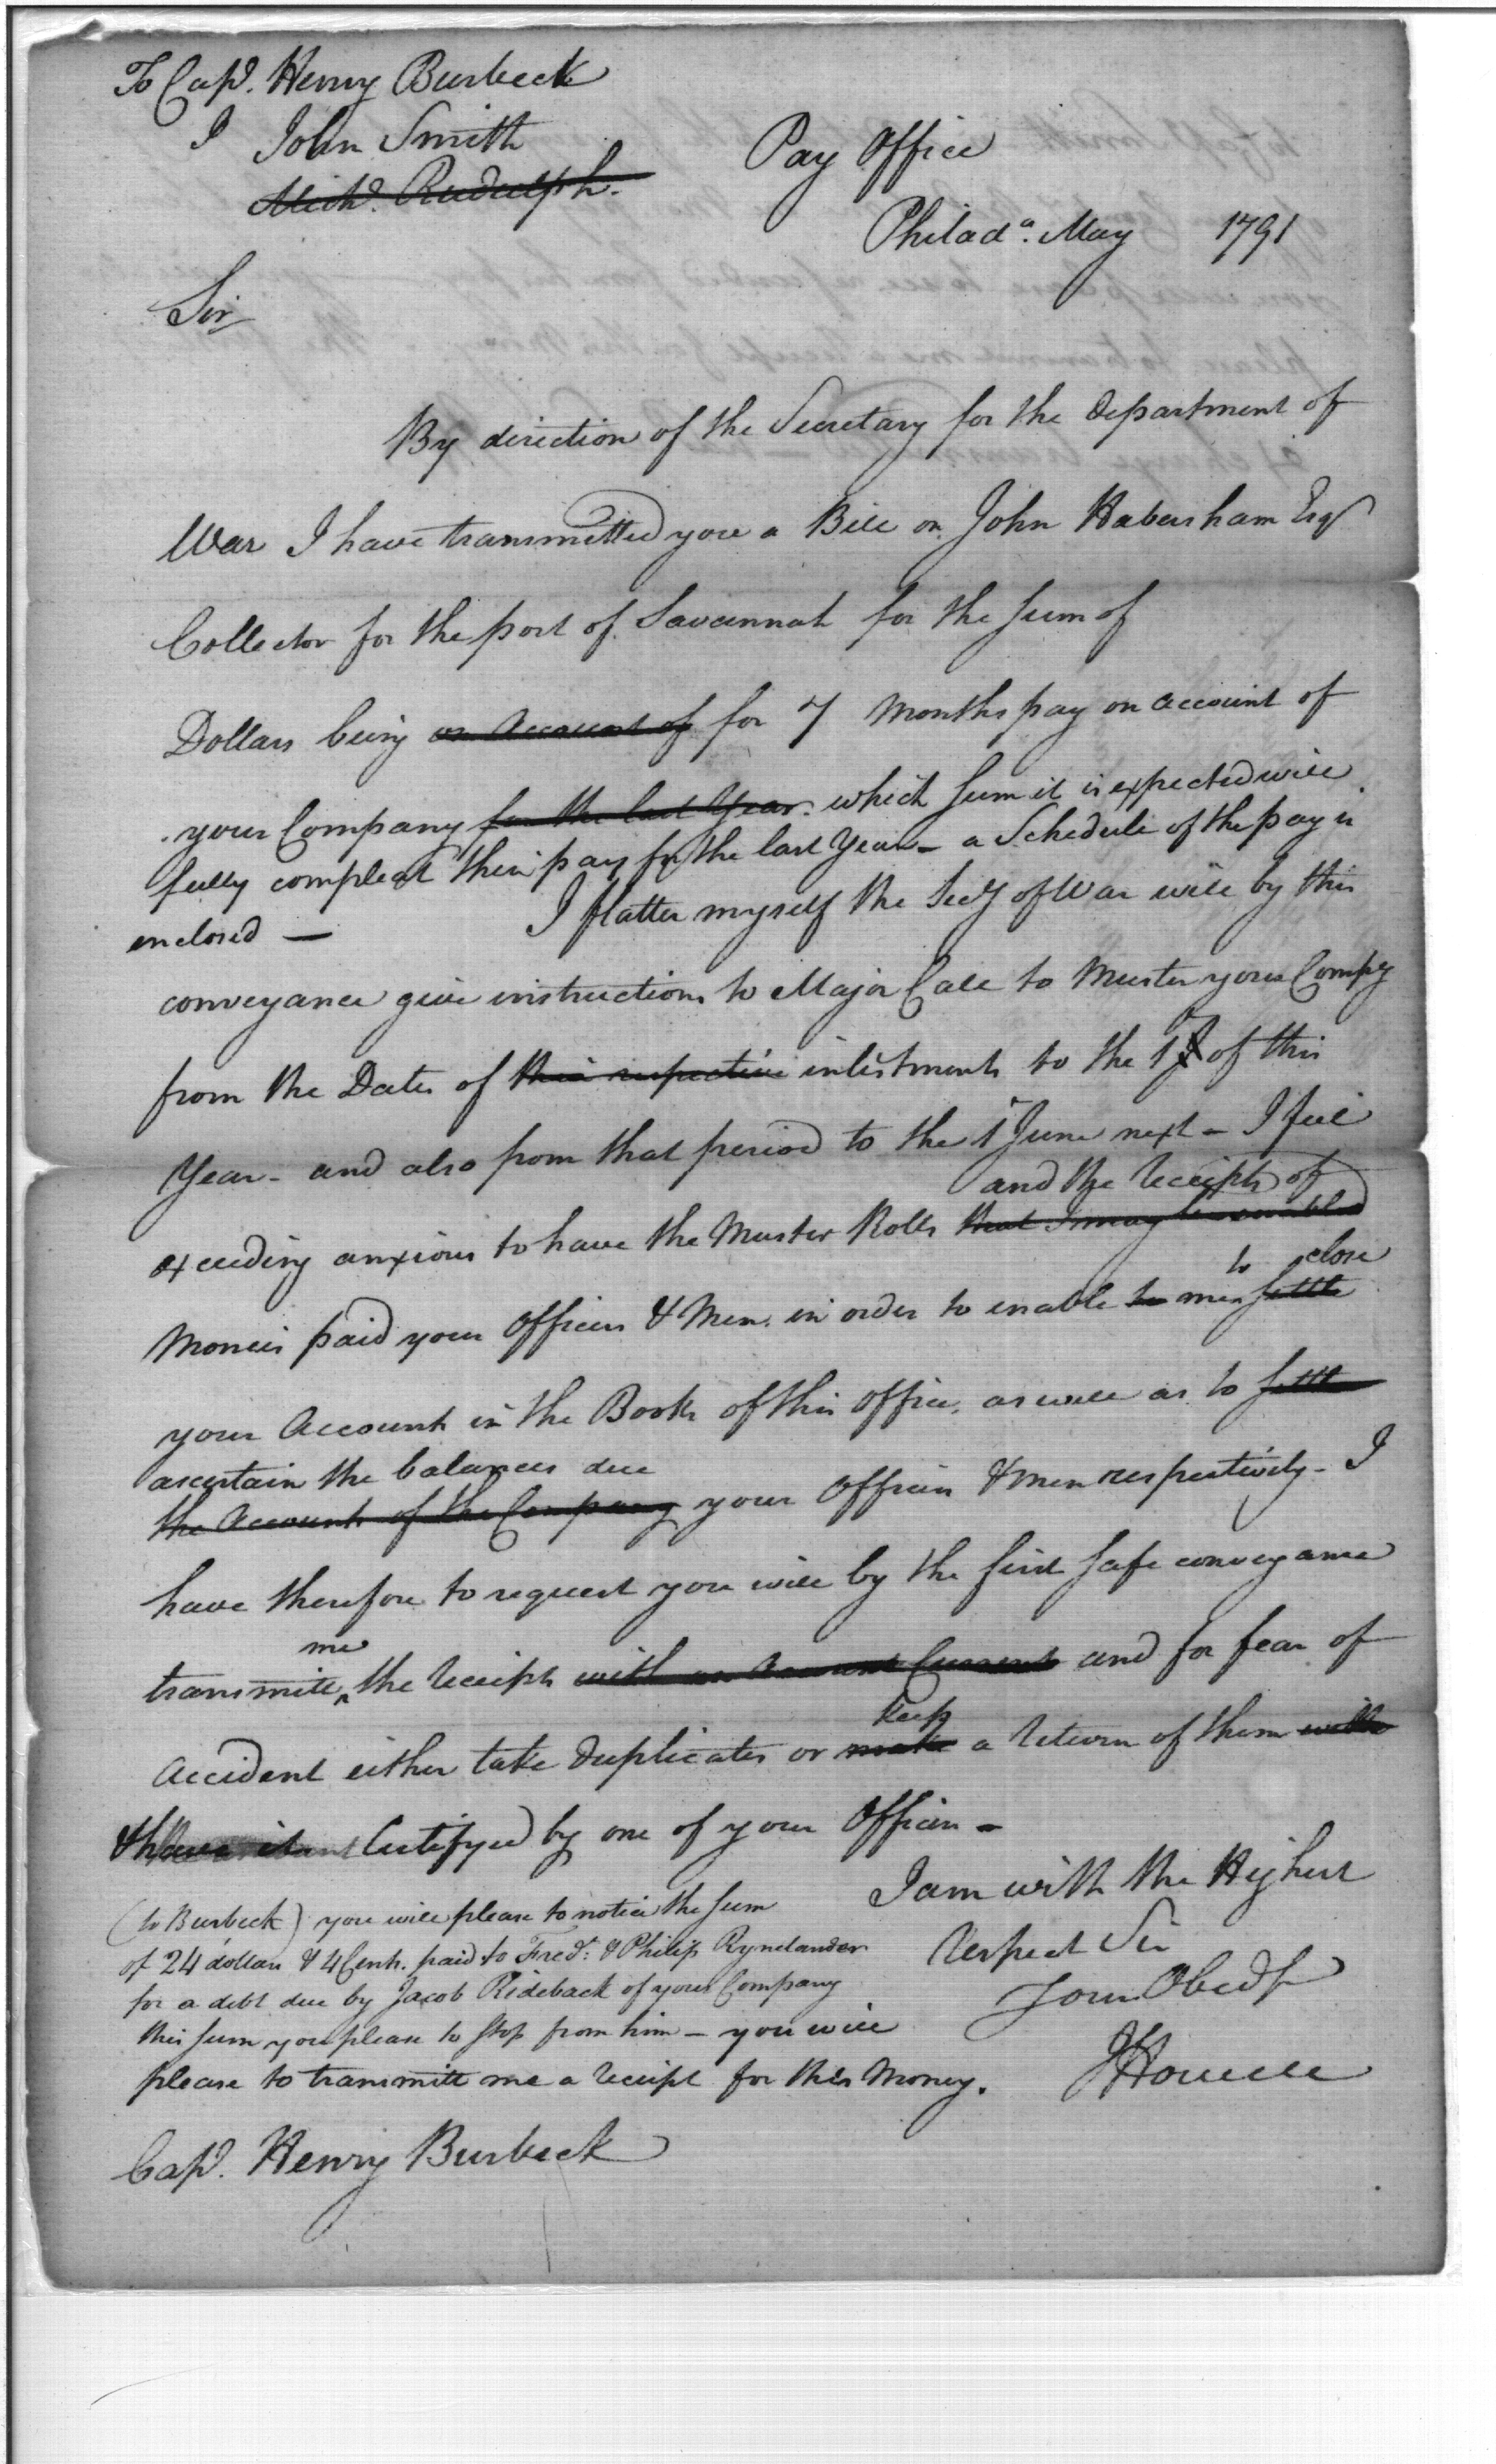 To Capt. Henry Burbeck
J John Smith
Michl. Rudulph.
Pay Office
Philada. May 1791
Sir
By direction of the Secretary for the department of
War I have transmitted you a Bill on John Habersham Esqr
Collector for the port of Savannah for the sum of
Dollars being on Account of for 7 Months pay on account of
your Company for the last Year. which sum it is expected will
fully compleat their pay for the last Year - a Schedule of the pay is
enclosed — I flatter myself the Secy of War will by this
conveyance give instructions to Major Call to Muster your Compy
from the Dates of their respective inlistments to the 1st of this
Year - and also from that period to the 1st June next - I feel
and the receipts of
exceeding anxious to have the Muster Rolls that I may be enabled
to close
Monies paid your Officers & Men. in order to enable to me settle
your Account in the Books of this Office, as well as to settle
ascertain the balances due
the Accounts of the Company your Officers & Men respectively - I
have therefore to request you will by the first safe conveyance
me
transmitt the receipts with an Account Current and for fear of
keep
Accident either take Duplicates or make a return of them with
& have it Certifyed by one of your Officers -
(to Burbeck) you will please to notice the sum
of 24 dollars & 4 Cents. paid to Fredk. & Philip Rynelander
for a debt due by Jacob Rideback of your Company
this sum you please to stop from him - you will
please to transmitt me a receipt for this Money.
I am with the Highest
respect Sir
Your Obedt
JHowell
Capt. Henry Burbeck